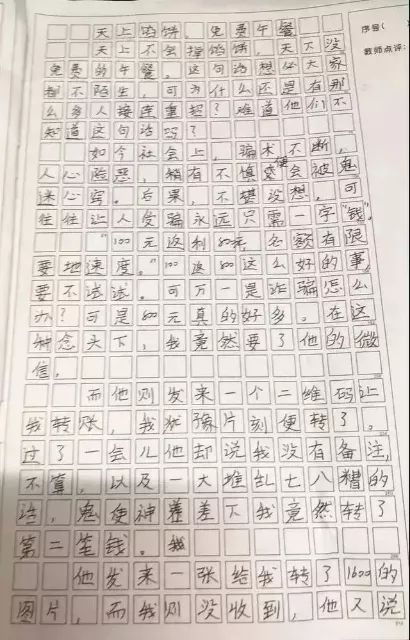 天上馅饼，免费午餐
序号(
天上不会掉馅饼，天下没
教师点评：
免费的午餐。这句话想必大家
都不陌生，可为什么还是有那
么多人接连重蹈？难道他们不
知道这句话吗？
如今社会上，骗术不断，
人心险恶，稍有不慎便会被鬼
迷心窍。后果，不堪设想，可
往往让人受骗永远只需一字“钱”。
“100元返利800元，名额有限
要地速度。”100返800这么好的事，
要不试试。可万一是诈骗怎么
办？可是800元真的好多。在这
种念头下，我竟然要了他的微
信。
而他则发来一个二维码让
我转账，我犹豫片刻便转了。
过了一会儿他却说我没有备注，
不算，以及一大堆乱七八糟的
话，鬼使神差差下我竟然转了
第二笔钱。我
他发来一张给我转了1600的
图片，而我则没收到，他又说